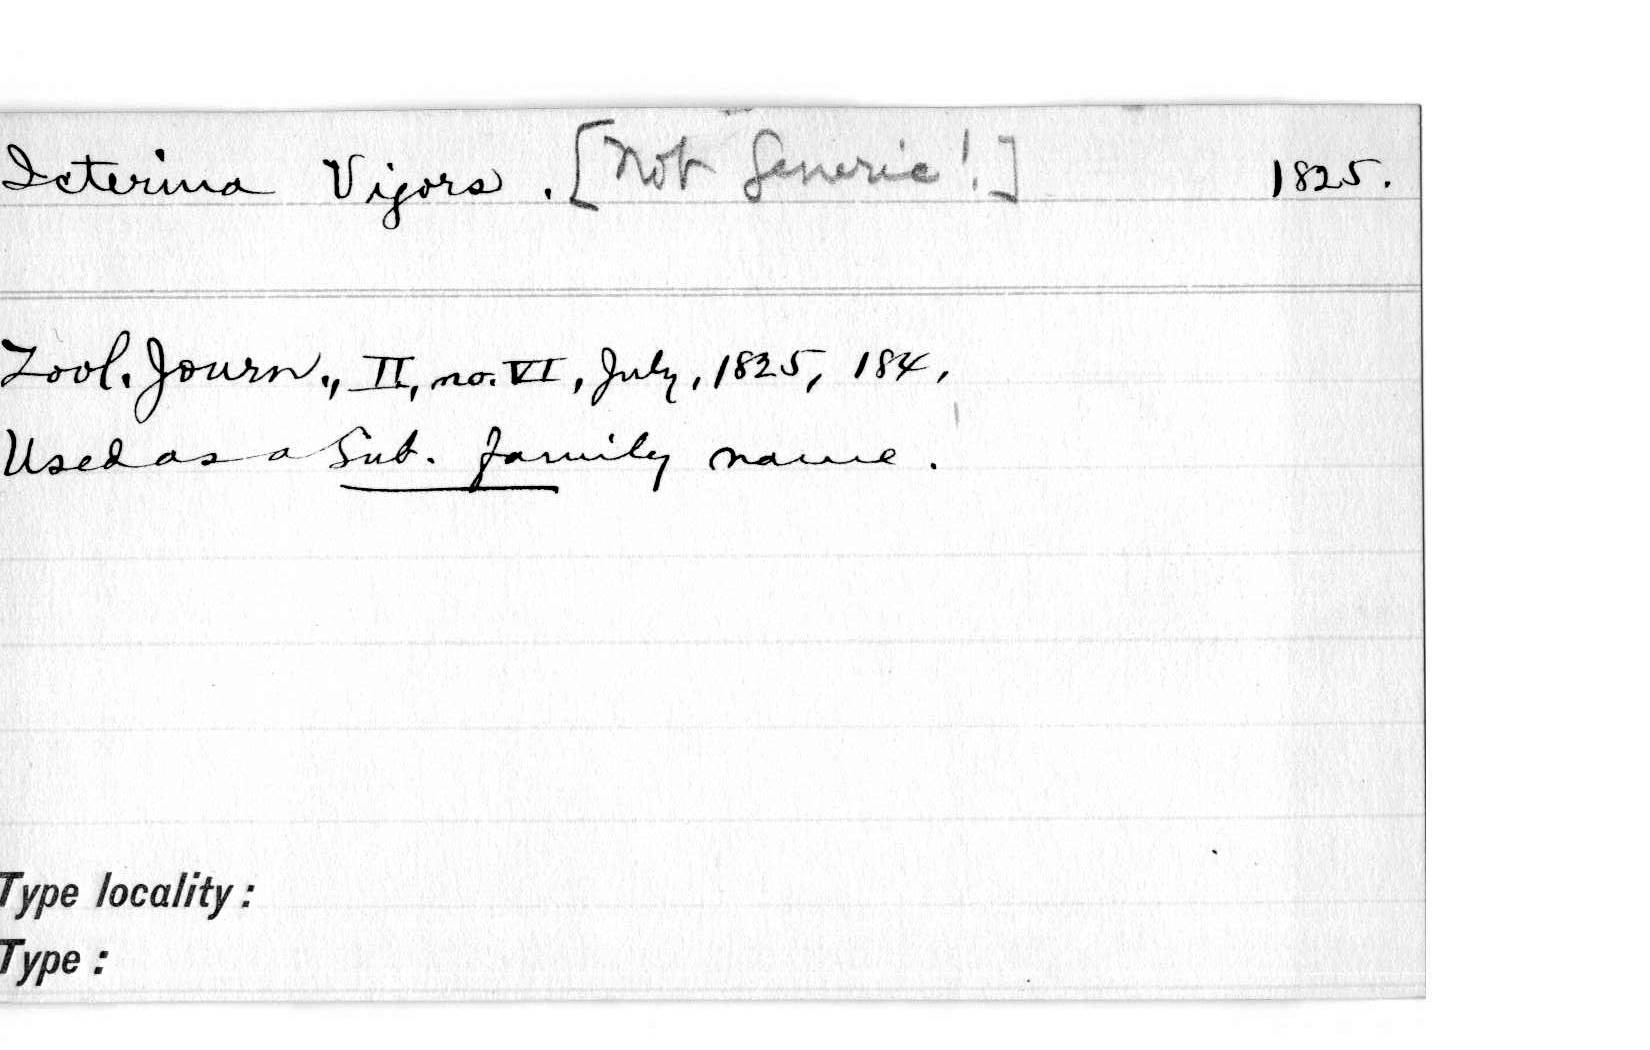 Icterina Vigors. [Not generic!] 1825.
Zool. Journ., II, no. VI, July, 1825, 184,
Used as a Sub. family name.
Type locality:
Type: